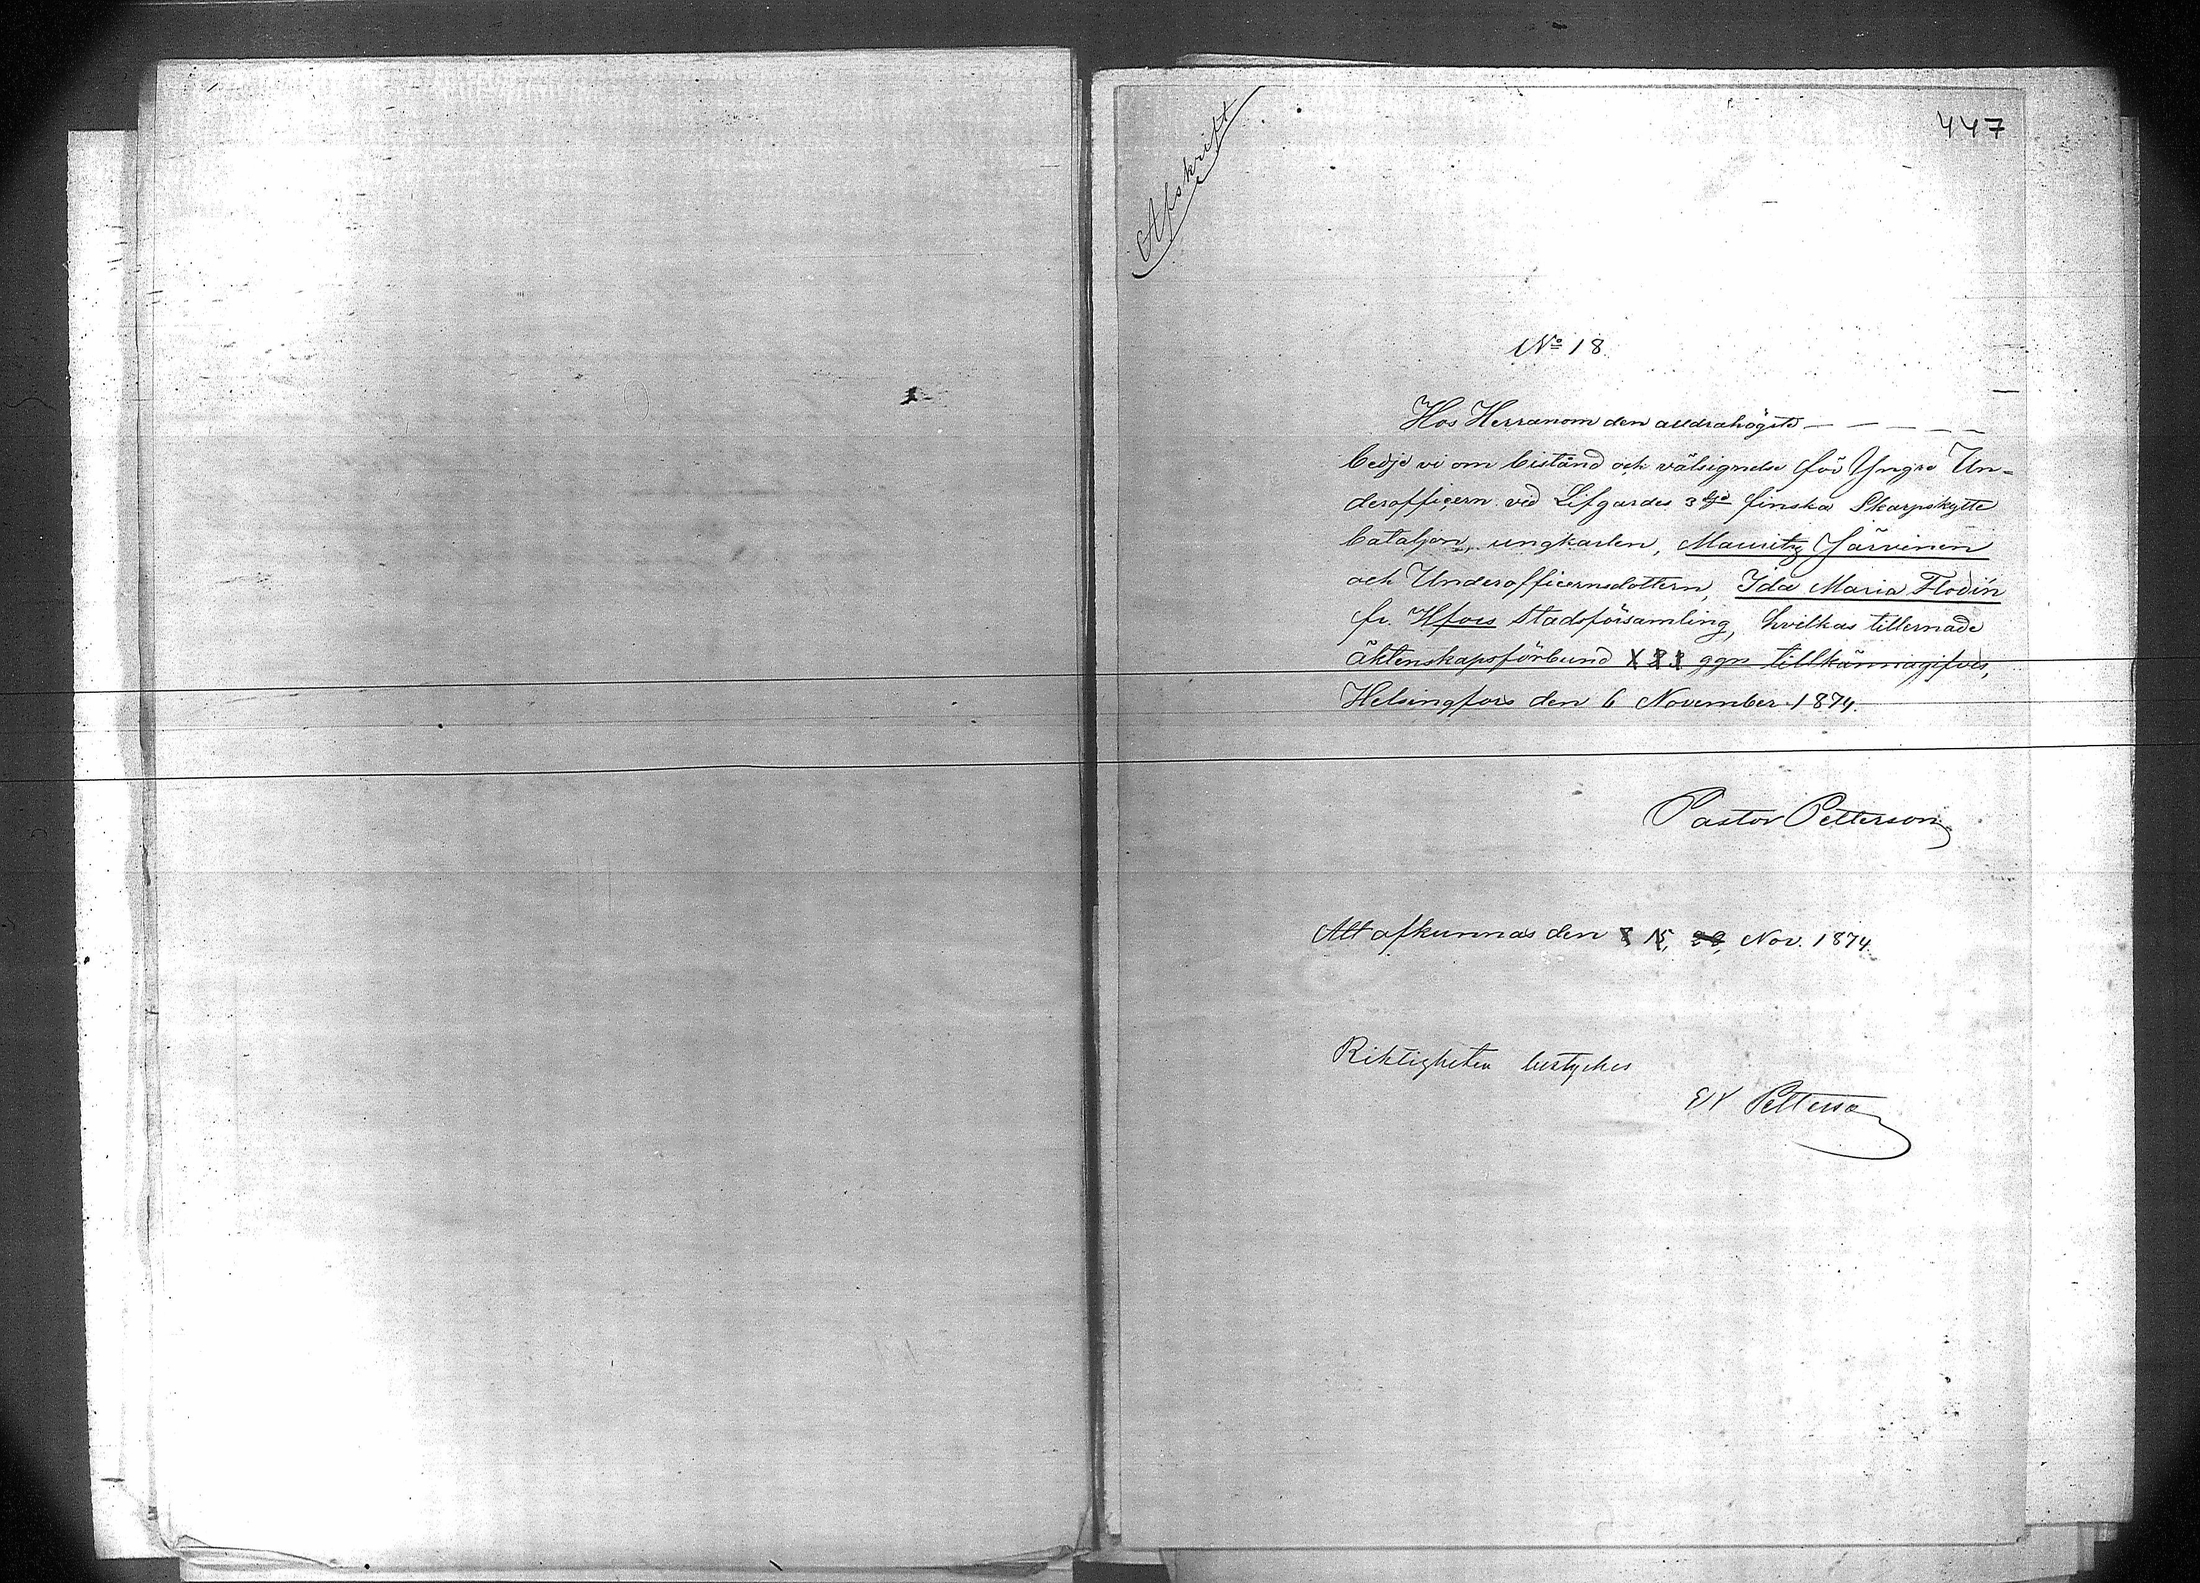 Afskrift
447
No 18
Hos Herranom den alldrahögste — — — — —
bedje vi om bistånd och välsignelse för Yngre Un-
derofficern vid Lifgardes 3dje finska Skarpskytte
bataljon, ungkarlen, Mauritz Järvinen
och Underofficersdottern, Ida Maria Flodin
fr. Hfors Stadsförsamling, hvilkas tillernade
äktenskapsförbund 1 2 3 ggn tillkännagifves,
Helsingfors den 6 November 1874.
Pastor Petterson
Att afkunnas den 8 15, 22, Nov. 1874.
Riktigheten bestyrkes
Petterson